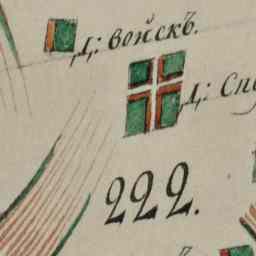 Д: войскъ.
Д: Спо
222.